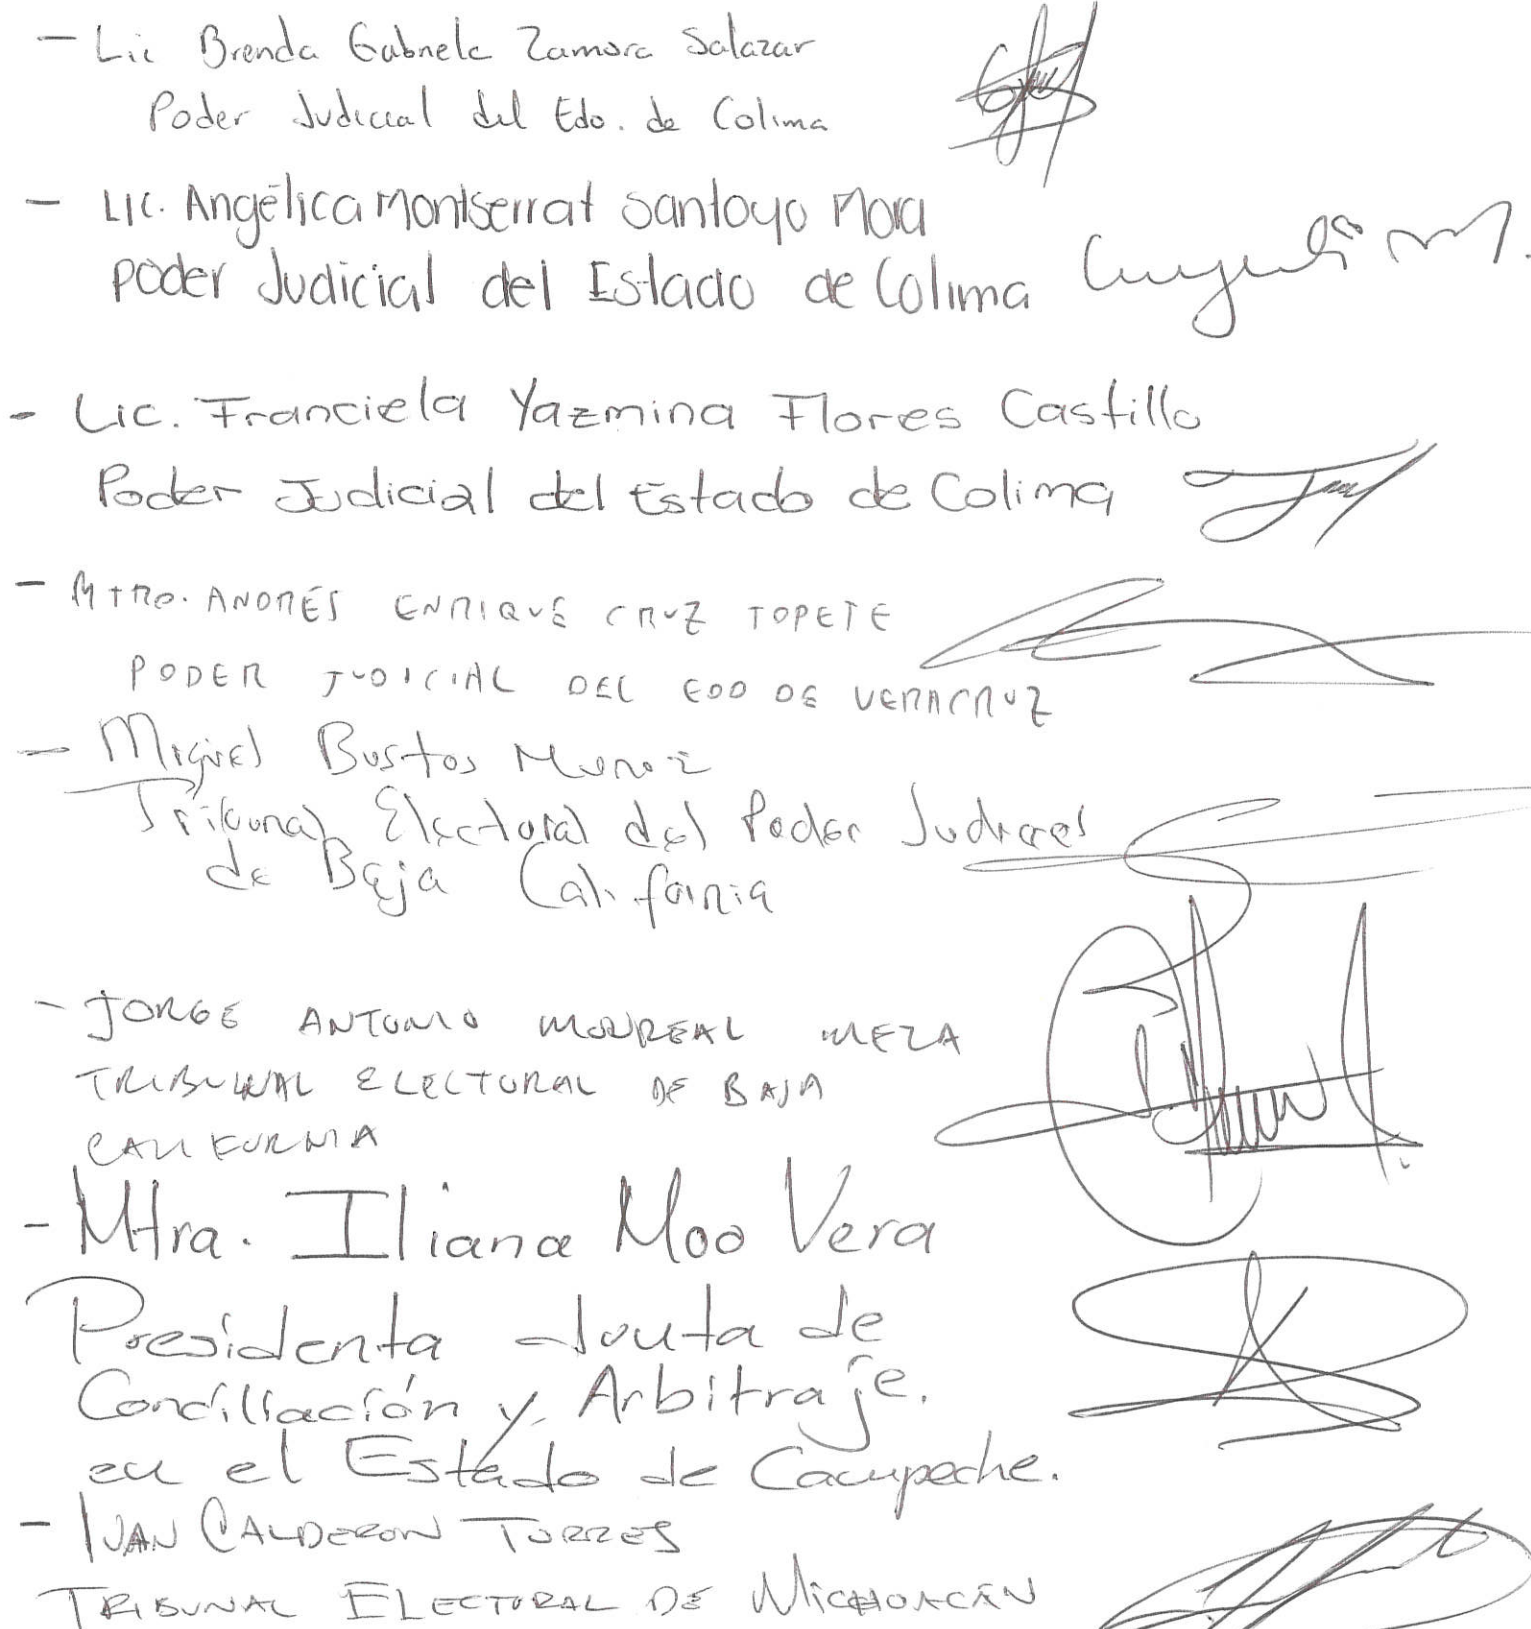 - Lic Brenda Gabriela Zamora Salazar
Poder Judicial del Edo. de Colima
- LIC. Angélica Montserrat Santoyo Mora
Poder Judicial del Estado de Colima
- Lic. Franciela Yazmina Flores Castillo
Poder Judicial del Estado de Colima
- MTRO. ANDRÉS ENRIQUE CRUZ TOPETE
PODER JUDICIAL DEL EDO DE VERACRUZ
- Miguel Bustos Munoz
Tribunal Electoral del Poder Judicial
de Baja California
- JORGE ANTONIO MONREAL MEZA
TRIBUNAL ELECTORAL DE BAJA
CALIFORNIA
- Mtra. Iliana Moo Vera
Presidenta Junta de
Conciliación y Arbitraje.
en el Estado de Campeche.
- IVAN CALDERON TORRES
TRIBUNAL ELECTORAL DE MICHOACÁN